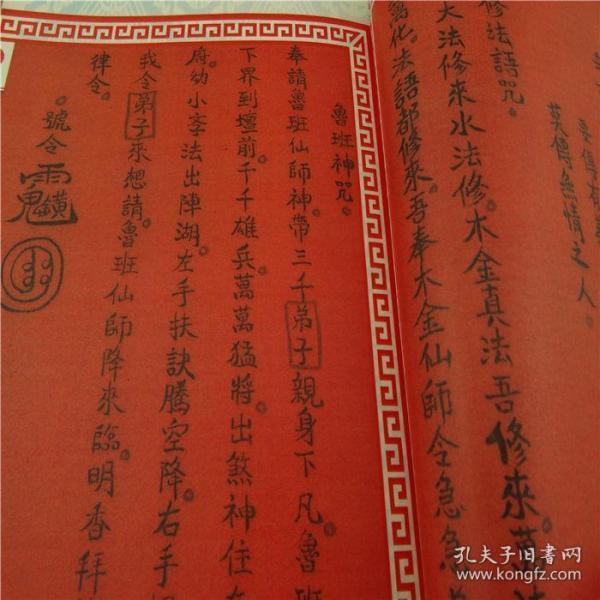 莫傳無情之人。
修法語咒。
大法修來水法修。木金真法吾修來。萬法
萬化。法語都修來。吾奉木金仙師令急急
魯班神咒。
奉請魯班仙師神。帶三千弟子親身下凡。魯班
下界到壇前。千千雄兵萬萬猛將。出煞神住在
府。幼小李法出陣湖。左手扶訣騰空降。右手
我令弟子來想請。魯班仙師降來臨。明香拜
律令。
號令
孔夫子旧书网
www.kongfz.com